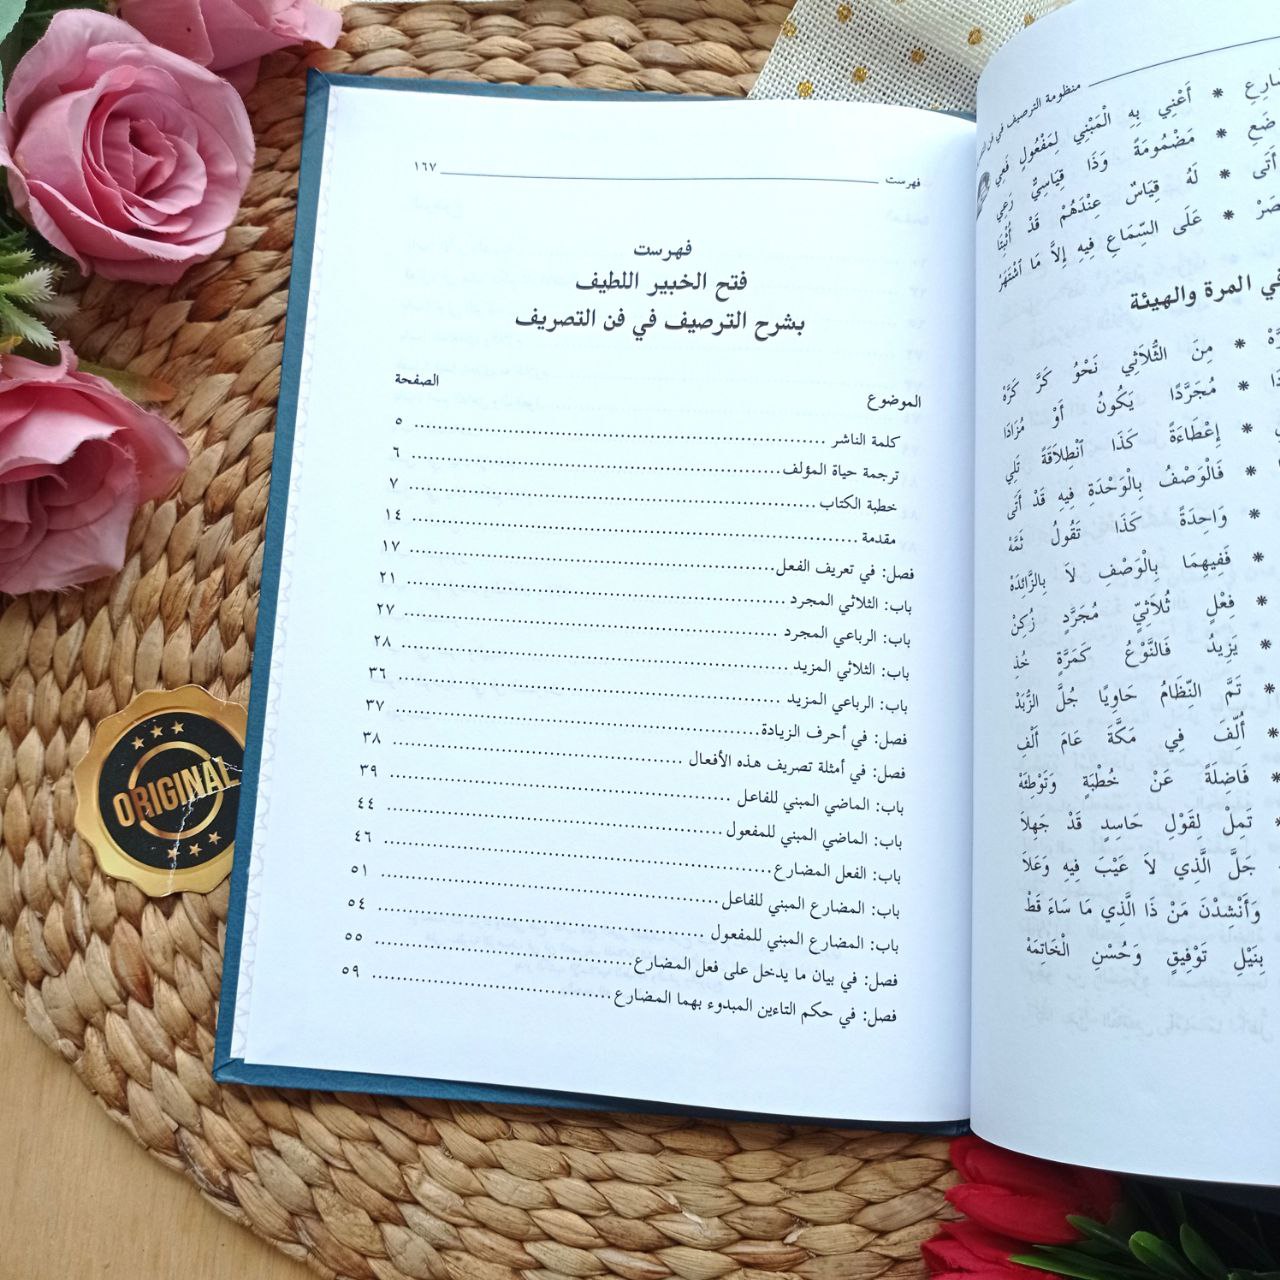 منظومة الترصيف في فن
أَعْنِي بِهِ الْمَبْنِي لِمَفْعُولٍ فَعِي
مَضْمُومَةً وَذَا قِيَاسِيٌّ رُعِي
لَهُ قِيَاسٌ عِنْدَهُمْ قَدْ أُثْبِتَا
عَلَى السِّمَاعِ فِيهِ إِلاَّ مَا ٱشْتَهَرْ
في المرة والهيئة
* مِنَ الثُّلاَثِي نَحْوُ كَرَّ كَرَّهْ
* مُجَرَّدًا يَكُونُ أَوْ مُزَادَا
* إِعْطَاءَةً كَذَا ٱنْطِلاَقَةً تَلِي
* فَالْوَصْفُ بِالْوَحْدَةِ فِيهِ قَدْ أَتَى
* وَاحِدَةً كَذَا تَقُولُ ثَمَّهْ
* فَفِيهِمَا بِالْوَصْفِ لاَ بِالزَّائِدَهْ
* فِعْلٍ ثُلاَثِيٍّ مُجَرَّدٍ زُكِنْ
* يَزِيدُ فَالنَّوْعُ كَمَرَّةٍ خُذِ
* تَمَّ النِّظَامُ حَاوِيًا جُلَّ الزُّبَدْ
* أُلِّفَ فِي مَكَّةَ عَامَ أَلْفِ
* فَاضِلَةً عَنْ خُطْبَةٍ وَتَوْطِئَهْ
* تَمِلْ لِقَوْلِ حَاسِدٍ قَدْ جَهِلاَ
جَلَّ الَّذِي لاَ عَيْبَ فِيهِ وَعَلاَ
وَأَنْشِدْنَ مَنْ ذَا الَّذِي مَا سَاءَ قَطْ
بِنَيْلِ تَوْفِيقٍ وَحُسْنِ الْخَاتِمَهْ
فهرست ١٦٧
فهرست
فتح الخبير اللطيف
بشرح الترصيف في فن التصريف
الموضوع الصفحة
كلمة الناشر ٥
ترجمة حياة المؤلف ٦
خطبة الكتاب ٧
مقدمة ١٤
فصل: في تعريف الفعل ١٧
باب: الثلاثي المجرد ٢١
باب: الرباعي المجرد ٢٧
باب: الثلاثي المزيد ٢٨
باب: الرباعي المزيد ٣٦
فصل: في أحرف الزيادة ٣٧
فصل: في أمثلة تصريف هذه الأفعال ٣٨
باب: الماضي المبني للفاعل ٣٩
باب: الماضي المبني للمفعول ٤٤
باب: الفعل المضارع ٤٦
باب: المضارع المبني للفاعل ٥١
باب: المضارع المبني للمفعول ٥٤
فصل: في بيان ما يدخل على فعل المضارع ٥٥
فصل: في حكم التاءين المبدوء بهما المضارع ٥٩
ORIGINAL